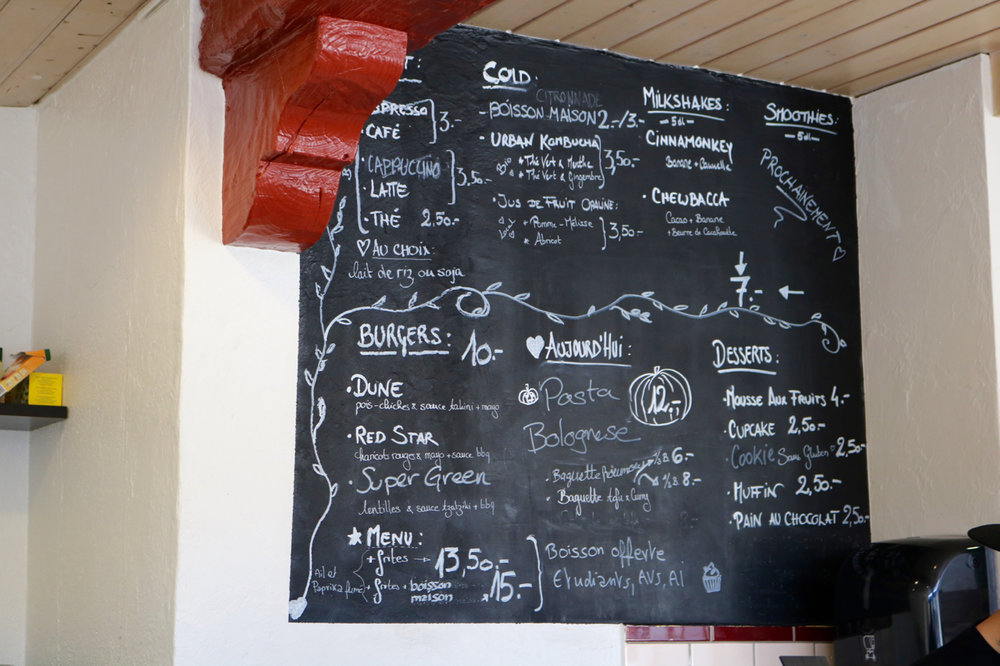 T:
ESPRESSO
CAFÉ
3.-
CAPPUCCINO
LATTE
3,50.-
THÉ 2,50.-
AU CHOIX
lait de riz ou soja
COLD:
CITRONNADE
BOISSON MAISON 2.-/3.-
URBAN KOMBUCHA
* Thé Vert & Menthe
* Thé Vert & Gingembre
3,50.-
JUS DE FRUIT OPALINE:
* Pomme-Mélisse
* Abricot
3,50.-
MILKSHAKES:
5dl
CINNAMONKEY
Banane + Cannelle
CHEWBACCA
Cacao + Banane
+ Beurre de Cacahouète
SMOOTHIES:
5dl
PROCHAINEMENT
7.-
BURGERS: 10.-
DUNE
pois-chiches & sauce tahini + mayo
RED STAR
haricots rouges & mayo + sauce bbq
Super Green
lentilles & sauce tzatziki + bbq
MENU:
+ frites → 13,50.-
Ail et
Paprika fumé
+ frites + boisson
maison
15.-
AUJOURD'HUI:
Pasta
Bolognese
12.-
Baguette 1/2 B. 6.-
1/1 B. 8.-
Baguette tofu x Curry
Boisson offerte
Etudiants, AVS, AI
DESSERTS:
MOUSSE AUX FRUITS 4.-
CUPCAKE 2,50.-
Cookie Sans Gluten 2,50
MUFFIN 2,50.-
PAIN AU CHOCOLAT 2,50.-